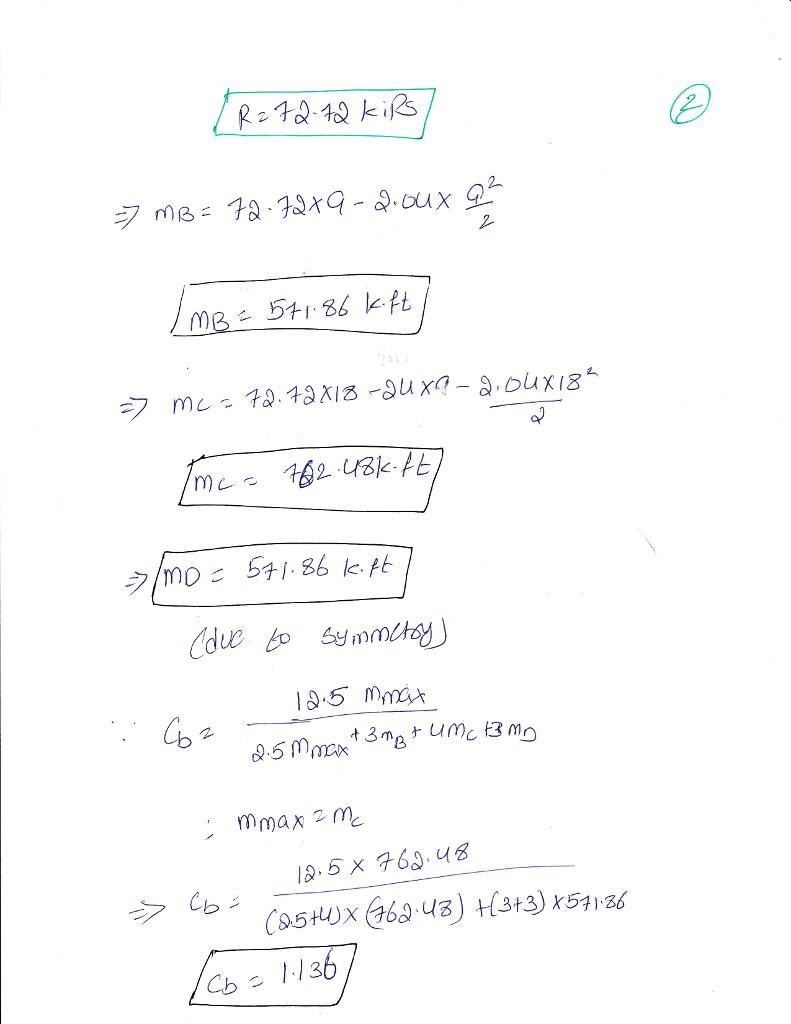 R = 72.72 kips
2
⇒ MB = 72.72 x 9 - 2.04 x 9²/2
MB = 571.86 k.ft
⇒ MC = 72.72 x 18 - 24 x 9 - 2.04 x 18²/2
MC = 762.48 k.ft
⇒ MD = 571.86 k.ft
(due to symmetry)
∵ Cb = 12.5 Mmax / 2.5 Mmax + 3 MB + 4 MC + 3 MD
; Mmax = MC
⇒ Cb = 12.5 x 762.48 / (2.5+4) x (762.48) + (3+3) x 571.86
Cb = 1.136